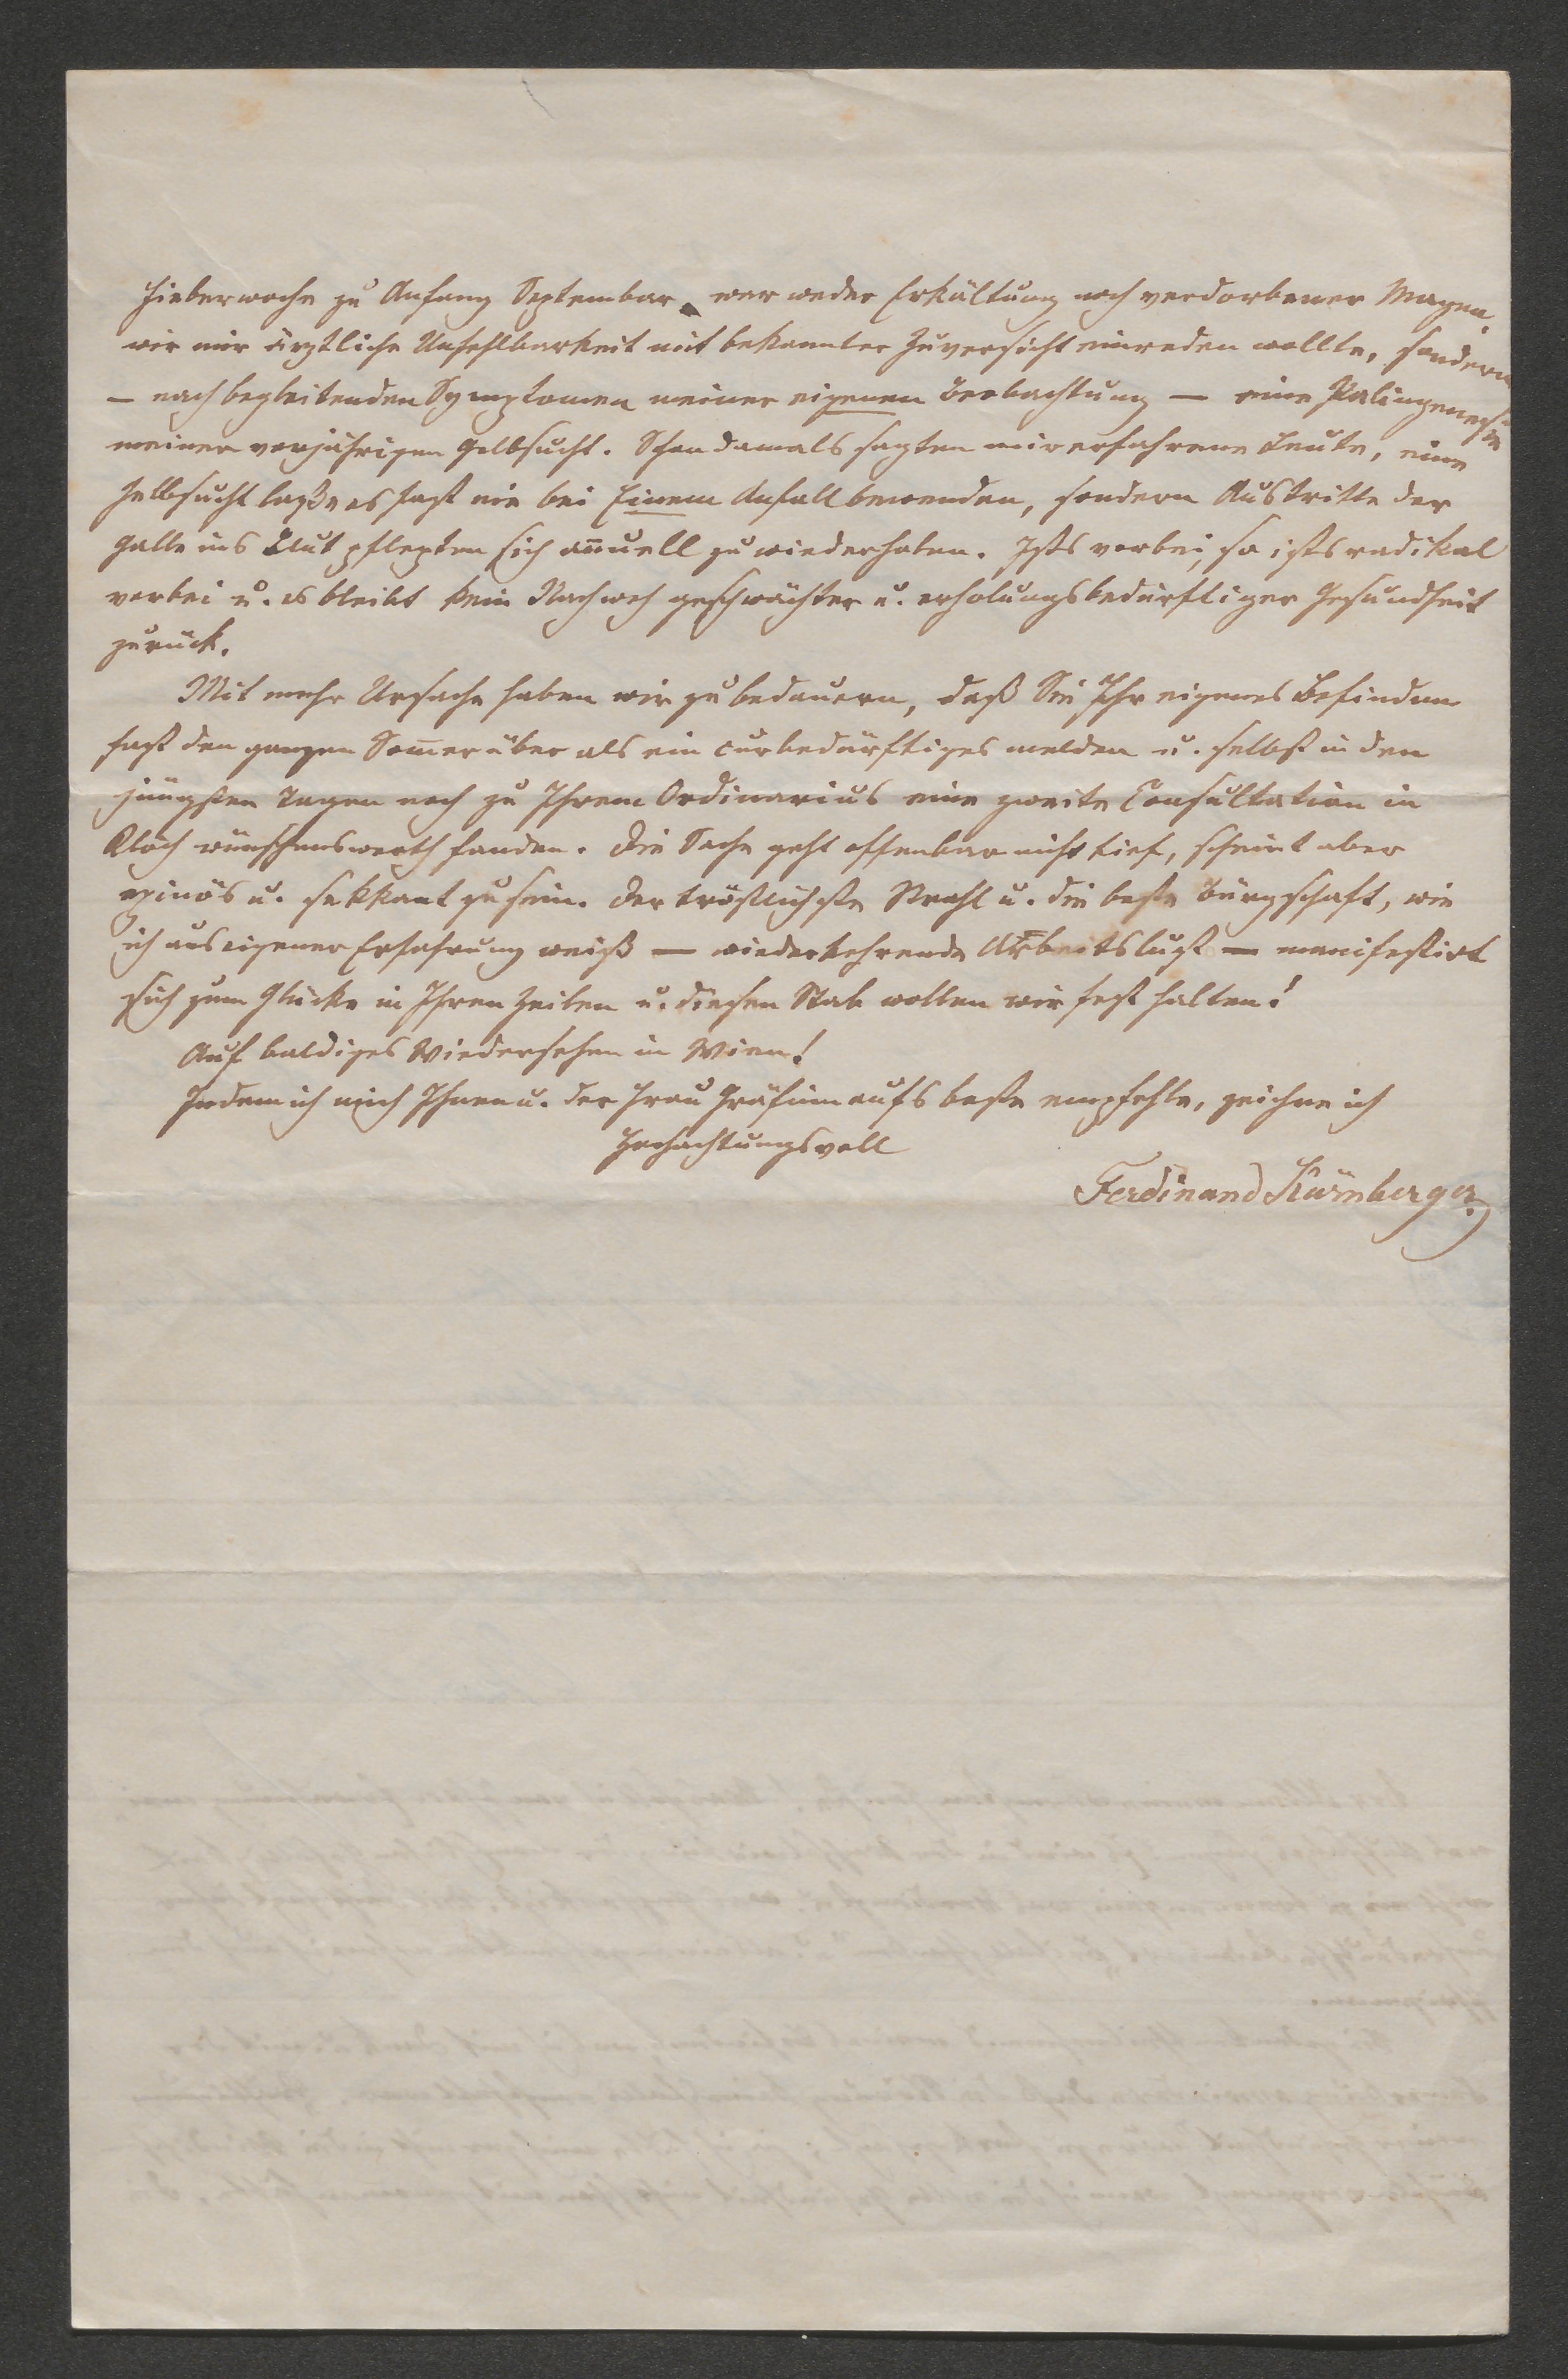 Fieberwoche zu Anfang September war weder Erkältung noch verdorbener Magen,
wie mir ärztliche Unfehlbarkeit mit bekannter Zuversicht einreden wollte, sondern
— nach begleitenden Symptomen meiner eigenen Beobachtung — eine Palingenesie
meiner vorjährigen Gelbsucht. Schon damals sagten mir erfahrene Leute, eine
Gelbsucht laße es fast nie bei Einem Anfall bewenden, sondern Austritte der
Galle ins Blut pflegten sich añuell zu wiederholen. Ists vorbei, so ists radikal
vorbei u. es bleibt kein Nachweh geschwächter u. erholungsbedürftiger Gesundheit
zurück.
Mit mehr Ursache haben wir zu bedauern, daß Sie Ihr eigenes Befinden
fast den ganzen Som̄er über als ein curbedürftiges melden u. selbst in den
jüngsten Tagen noch zu Ihrem Ordinarius eine zweite Consultation in
wünschenswerth fanden. Die Sache geht offenbar nicht tief, scheint aber
epinös u. sekkant zu sein. Der tröstlichste Strahl u. die beste Bürgschaft, wie
ich aus eigener Erfahrung weiß — wiederkehrende Arbeitslust — manifestirt
sich zum Glücke in Ihren Zeilen u. diesen Stab wollen wir fest halten!
Auf baldiges Wiedersehen in Wien!
Indem ich mich Ihnen u. der Frau Gräfin aufs beste empfehle, zeichne ich
Hochachtungsvoll
Ferdinand Kürnberger.